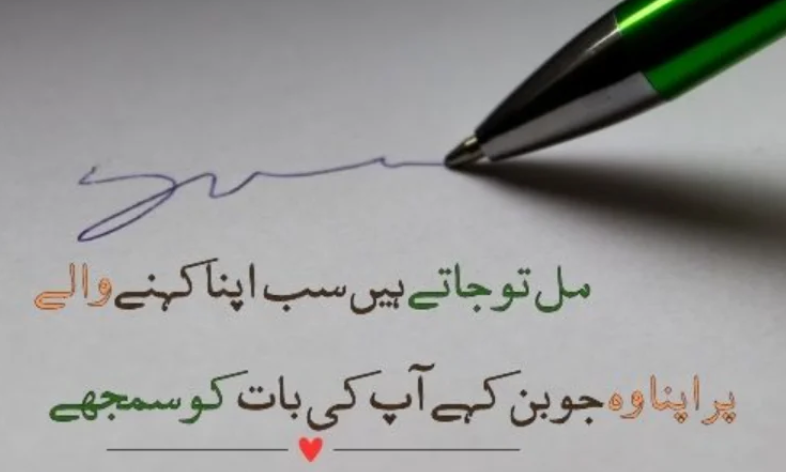 مل تو جاتے ہیں سب اپنا کہنے والے
پر اپنا وہ جو بن کہے آپ کی بات کو سمجھے